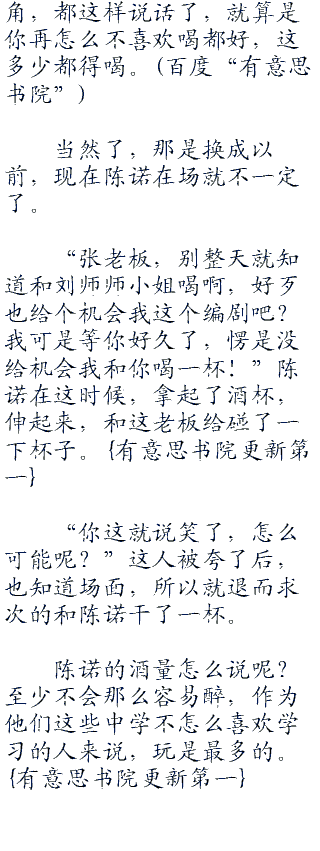 角，都这样说话了，就算是
你再怎么不喜欢喝都好，这
多少都得喝。(百度“有意思
书院”)
当然了，那是换成以
前，现在陈诺在场就不一定
了。
“张老板，别整天就知
道和刘师师小姐喝啊，好歹
也给个机会我这个编剧吧？
我可是等你好久了，愣是没
给机会我和你喝一杯！”陈
诺在这时候，拿起了酒杯，
伸起来，和这老板给碰了一
下杯子。{有意思书院更新第
一}
“你这就说笑了，怎么
可能呢？”这人被夸了后，
也知道场面，所以就退而求
次的和陈诺干了一杯。
陈诺的酒量怎么说呢？
至少不会那么容易醉，作为
他们这些中学不怎么喜欢学
习的人来说，玩是最多的。
{有意思书院更新第一}